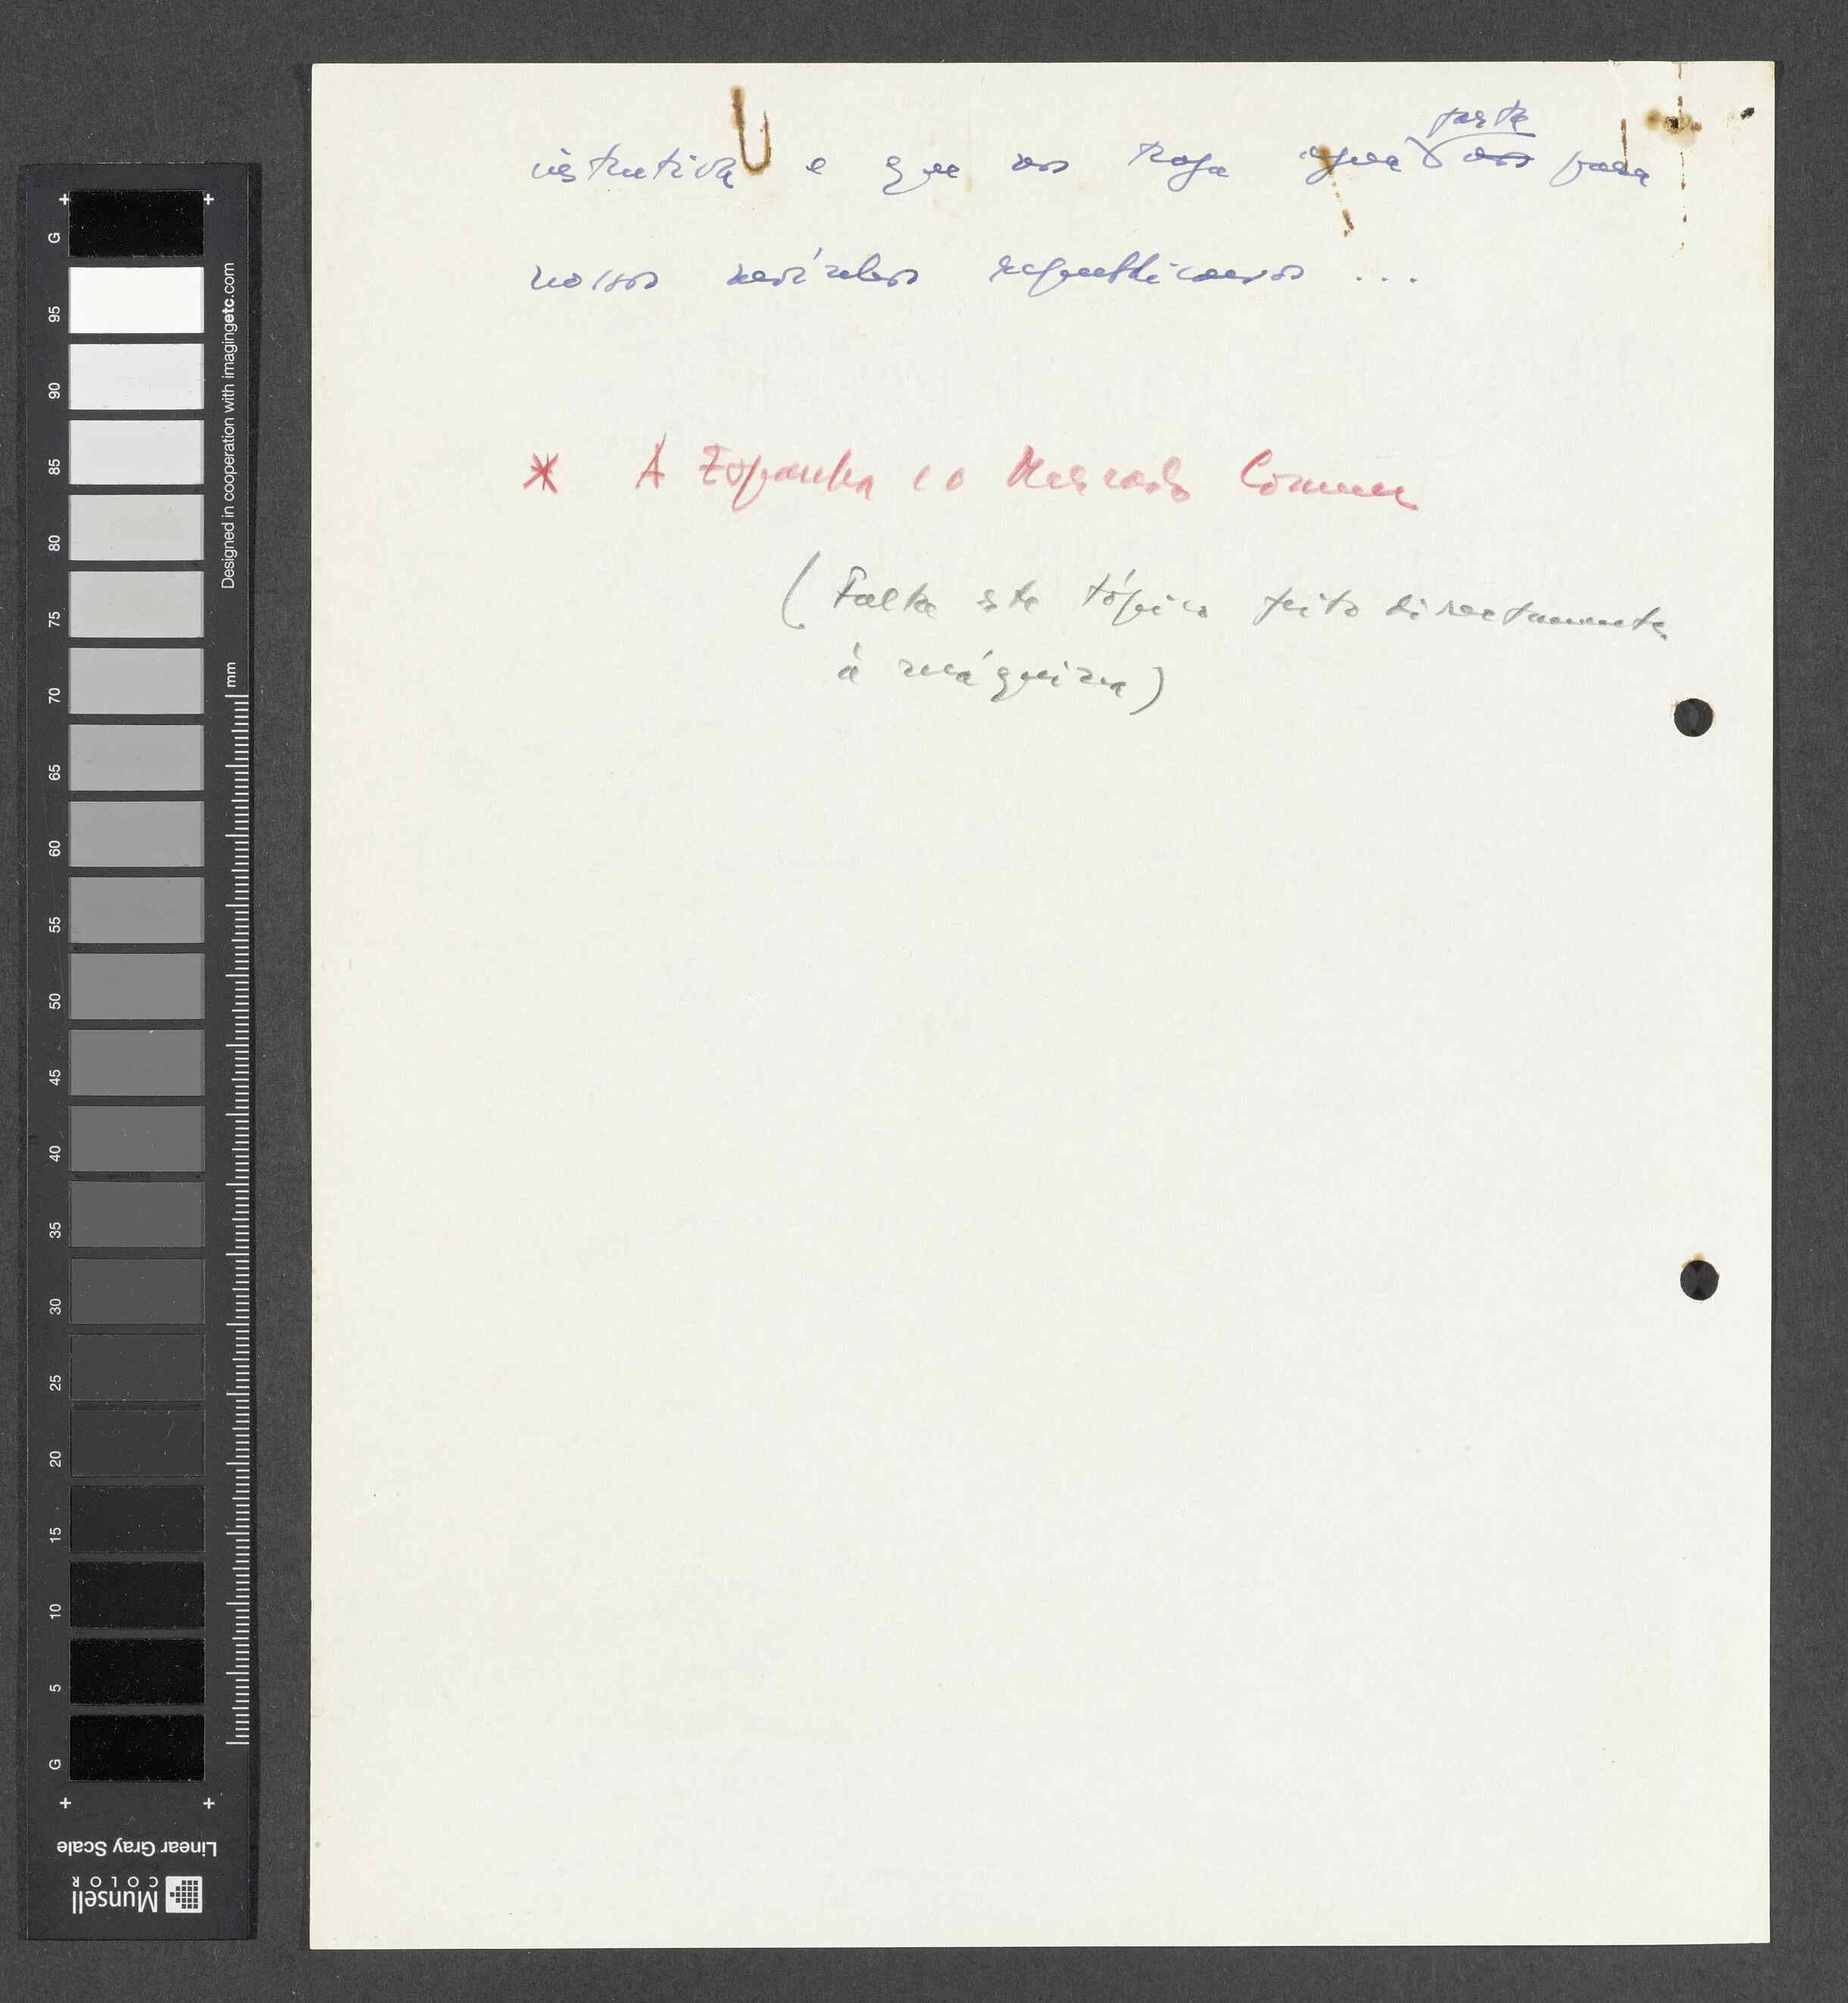 instrutiva e que nos traga água para
nossos moínhos republicanos ...
* A Espanha e o Mercado Comum
(Falta este tópico feito directamente
à máquina)
G
95
90
85
80
75
70
65
60
55
50
45
40
35
30
25
20
15
10
5
G
Designed in cooperation with imagingetc.com
mm
Linear Gray Scale
Munsell
COLOR